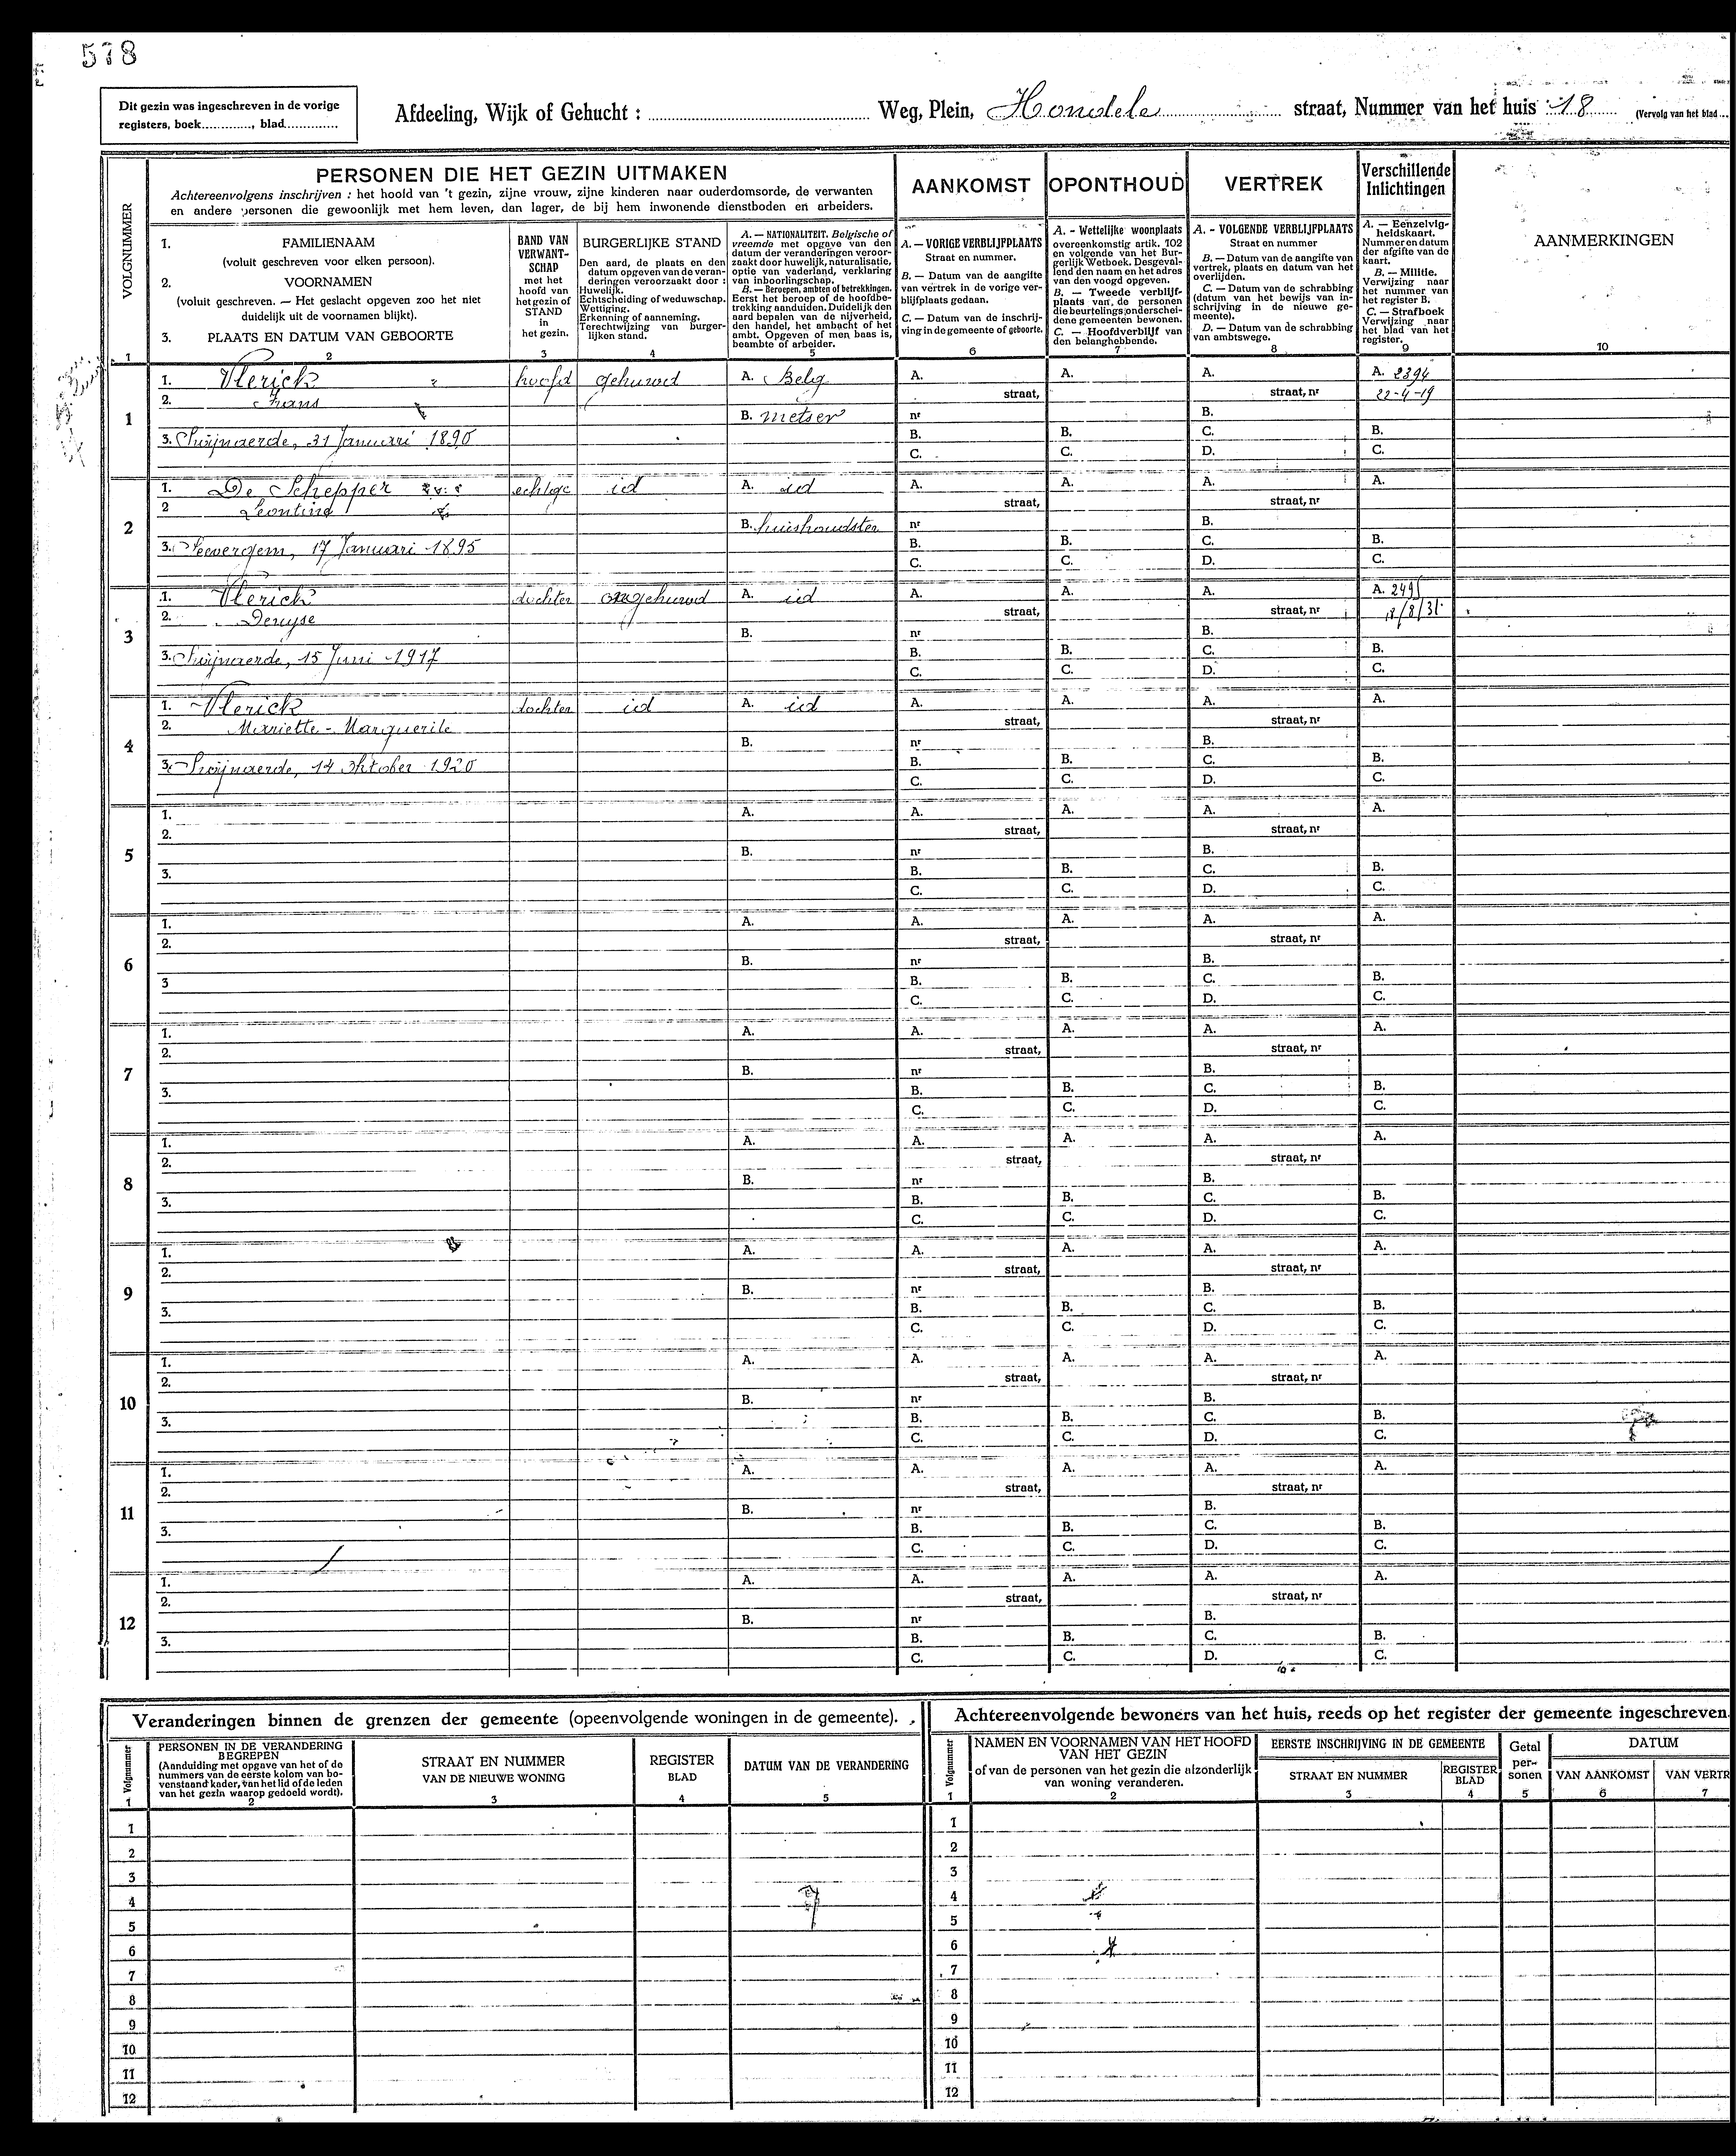 578
Dit gezin was ingeschreven in de vorige
registers, boek............, blad.............
Afdeeling, Wijk of Gehucht : ............ Weg, Plein, Hondele straat, Nummer van het huis 18 (Vervolg van het blad ...
VOLGNUMMER
PERSONEN DIE HET GEZIN UITMAKEN
Achtereenvolgens inschrijven : het hoold van 't gezin, zijne vrouw, zijne kinderen naar ouderdomsorde, de verwanten
en andere personen die gewoonlijk met hem leven, dan lager, de bij hem inwonende dienstboden en arbeiders.
1. FAMILIENAAM
(voluit geschreven voor elken persoon).
2. VOORNAMEN
(voluit geschreven. — Het geslacht opgeven zoo het niet
duidelijk uit de voornamen blijkt).
3. PLAATS EN DATUM VAN GEBOORTE
BAND VAN
VERWANT-
SCHAP
met het
hoofd van
het gezin of
STAND
in
het gezin.
BURGERLIJKE STAND
Den aard, de plaats en den
datum opgeven van de veran-
deringen veroorzaakt door :
Huwelijk.
Echtscheiding of weduwschap.
Wettiging.
Erkenning of aanneming.
Terechtwijzing van burger-
lijken stand.
A. — NATIONALITEIT. Belgische of
vreemde met opgave van den
datum der veranderingen veroor-
zaakt door huwelijk, naturalisatie,
optie van vaderland, verklaring
van inboorlingschap.
B. — Beroepen, ambten of betrekkingen.
Eerst het beroep of de hoofdbe-
trekking aanduiden. Duidelijk den
aard bepalen van de nijverheid,
den handel, het ambacht of het
ambt. Opgeven of men baas is,
beambte of arbeider.
AANKOMST
A. — VORIGE VERBLIJFPLAATS
Straat en nummer.
B. — Datum van de aangifte
van vertrek in de vorige ver-
blijfplaats gedaan.
C. — Datum van de inschrij-
ving in de gemeente of geboorte.
OPONTHOUD
A. - Wettelijke woonplaats
overeenkomstig artik. 102
en volgende van het Bur-
gerlijk Wetboek. Desgeval-
lend den naam en het adres
van den voogd opgeven.
B. — Tweede verblijf-
plaats van de personen
die beurtelings onderschei-
dene gemeenten bewonen.
C. — Hoofdverblijf van
den belanghebbende.
VERTREK
A. - VOLGENDE VERBLIJFPLAATS
Straat en nummer
B. — Datum van de aangifte van
vertrek, plaats en datum van het
overlijden.
C. — Datum van de schrabbing
(datum van het bewijs van in-
schrijving in de nieuwe ge-
meente).
D. — Datum van de schrabbing
van ambtswege.
Verschillende
Inlichtingen
A. — Eenzelvig-
heidskaart.
Nummer en datum
der afgifte van de
kaart.
B. — Militie.
Verwijzing naar
het nummer van
het register B.
C. — Strafboek
Verwijzing naar
het blad van het
register.
AANMERKINGEN
1 2 3 4 5 6 7 8 9 10
1
1. Vlerick hoofd gehuwd A. Belg A. A. A. A. 2394
2. Frans straat, straat, nr 22-4-19
B. metser nr B.
3. Swijnaerde, 31 Januari 1890 B. B. C. B.
C. C. D. C.
2
1. De Schepper echtge id A. id A. A. A. A.
2 Leontine straat, straat, nr
B. huishoudster nr B.
3. Seevergem, 17 Januari 1895 B. B. C. B.
C. C. D. C.
3
1. Vlerick dochter ongehuwd A. id A. A. A. A. 2495
2. Denyse straat, straat, nr 18/8/31
B. nr B.
3. Swijnaerde, 15 Juni 1917 B. B. C. B.
C. C. D. C.
4
1. Vlerick dochter id A. id A. A. A. A.
2. Mariette - Marguerite straat, straat, nr
B. nr B.
3. Swijnaerde, 14 Oktober 1920 B. B. C. B.
C. C. D. C.
5
1. A. A. A. A. A.
2. straat, straat, nr
B. nr B.
3. B. B. C. B.
C. C. D. C.
6
1. A. A. A. A. A.
2. straat, straat, nr
B. nr B.
3 B. B. C. B.
C. C. D. C.
7
1. A. A. A. A. A.
2. straat, straat, nr
B. nr B.
3. B. B. C. B.
C. C. D. C.
8
1. A. A. A. A. A.
2. straat, straat, nr
B. nr B.
3. B. B. C. B.
C. C. D. C.
9
1. A. A. A. A. A.
2. straat, straat, nr
B. nr B.
3. B. B. C. B.
C. C. D. C.
10
1. A. A. A. A. A.
2. straat, straat, nr
B. nr B.
3. B. B. C. B.
C. C. D. C.
11
1. A. A. A. A. A.
2. straat, straat, nr
B. nr B.
3. B. B. C. B.
C. C. D. C.
12
1. A. A. A. A. A.
2. straat, straat, nr
B. nr B.
3. B. B. C. B.
C. C. D. C.
Veranderingen binnen de grenzen der gemeente (opeenvolgende woningen in de gemeente).
Volgnummer
PERSONEN IN DE VERANDERING
BEGREPEN
(Aanduiding met opgave van het of de
nummers van de eerste kolom van bo-
venstaand kader, van het lid of de leden
van het gezin waarop gedoeld wordt).
STRAAT EN NUMMER
VAN DE NIEUWE WONING
REGISTER
BLAD
DATUM VAN DE VERANDERING
1 2 3 4 5
1
2
3
4
5
6
7
8
9
10
11
12
Achtereenvolgende bewoners van het huis, reeds op het register der gemeente ingeschreven.
Volgnummer
NAMEN EN VOORNAMEN VAN HET HOOFD
VAN HET GEZIN
of van de personen van het gezin die afzonderlijk
van woning veranderen.
EERSTE INSCHRIJVING IN DE GEMEENTE
STRAAT EN NUMMER
REGISTER
BLAD
Getal
per-
sonen
DATUM
VAN AANKOMST
VAN VERTR
1 2 3 4 5 6 7
1
2
3
4
5
6
7
8
9
10
11
12